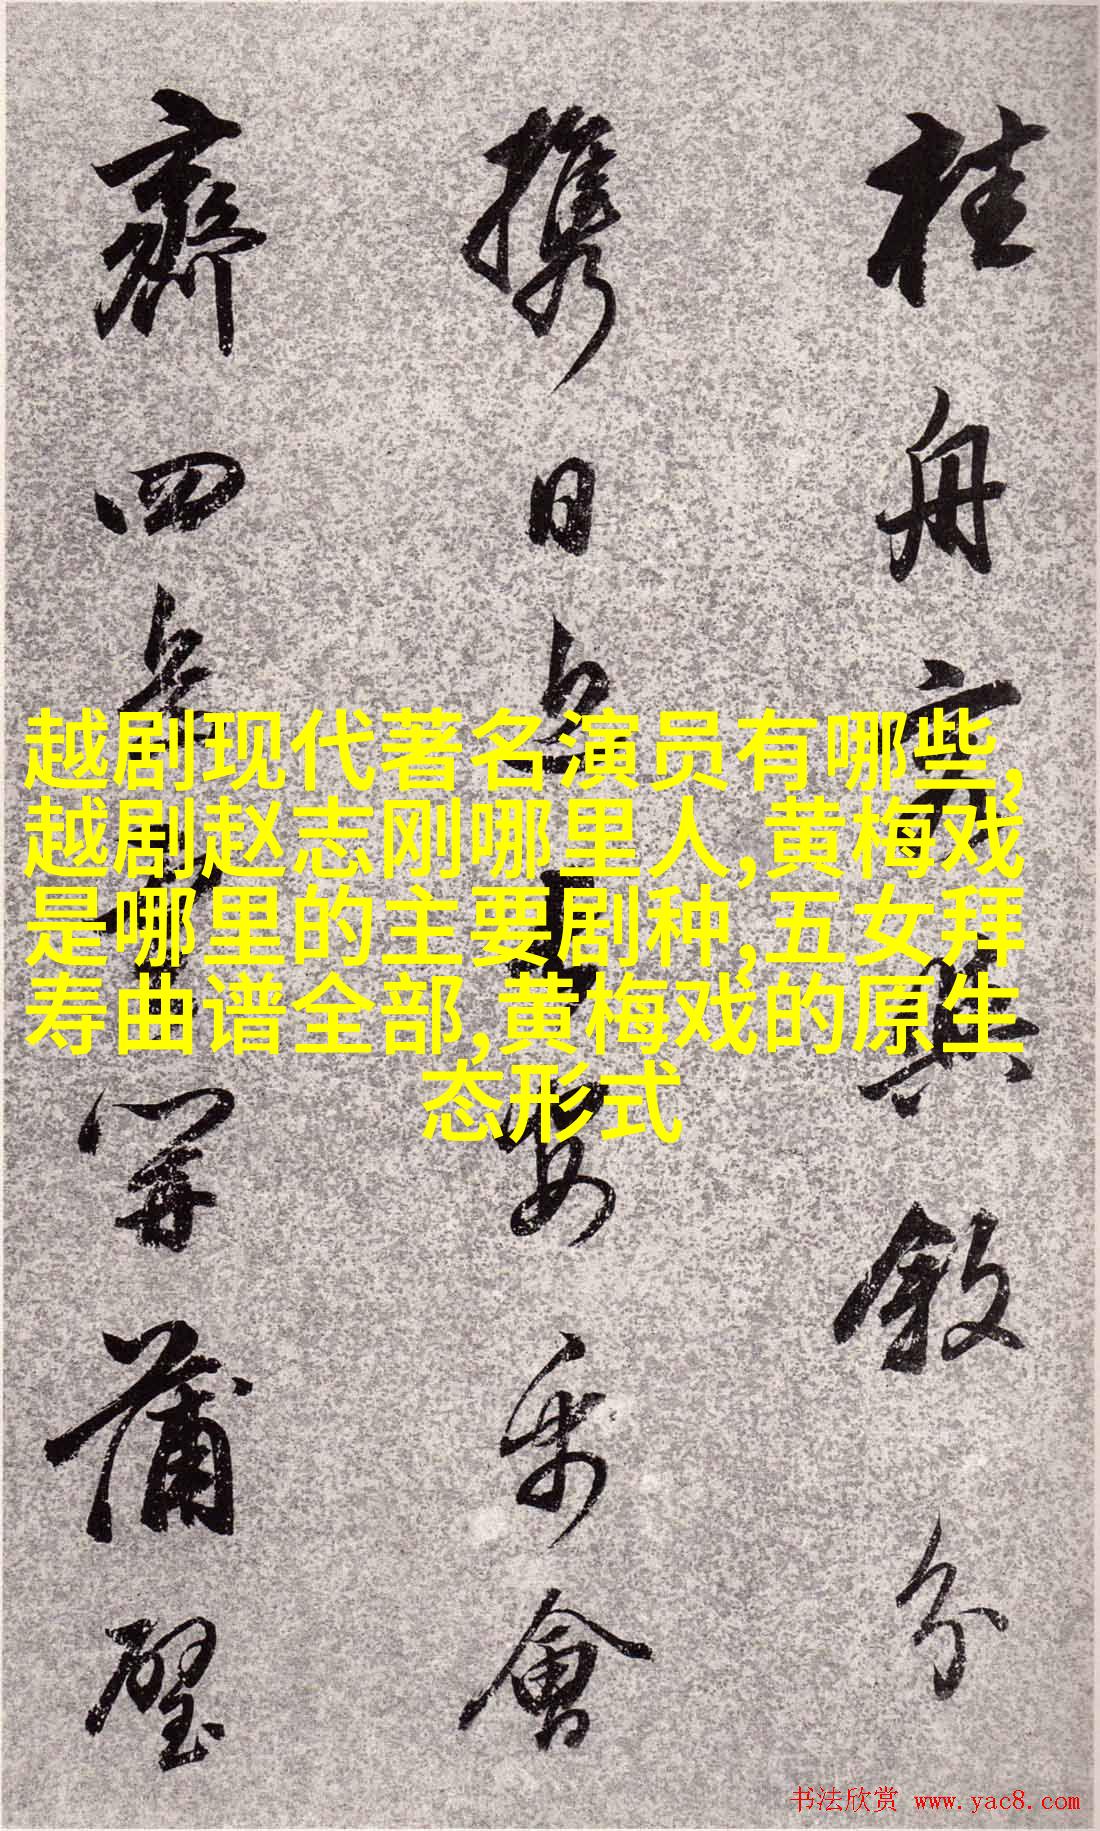 越剧现代著名演员有哪些,
越剧赵志刚哪里人,黄梅戏
是哪里的主要剧种,五女拜
寿曲谱全部,黄梅戏的原生
态形式
桂舟
與敘分
攜日
會
齊四
開蒲璧
书法欣赏 www.yac8.com